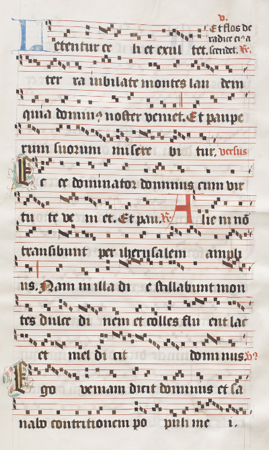 v.
Et flos de
radice eius
ascendet. R.
Letentur celi et exultet.
terra iubilate montes laudem
quia dominus noster veniet. Et paupe
rum suorum miserebitur. versus
Ecce dominator dominus cum vir
tute veniet. Et pau. R. Alieni nō
transibunt per iherusalem ampli
us. Nam in illa die stillabunt mon
tes dulcedinem et colles fluent lac
et mel dicit dominus. V.
Ego veniam dicit dominus et sa
nabo contritionem populi mei.